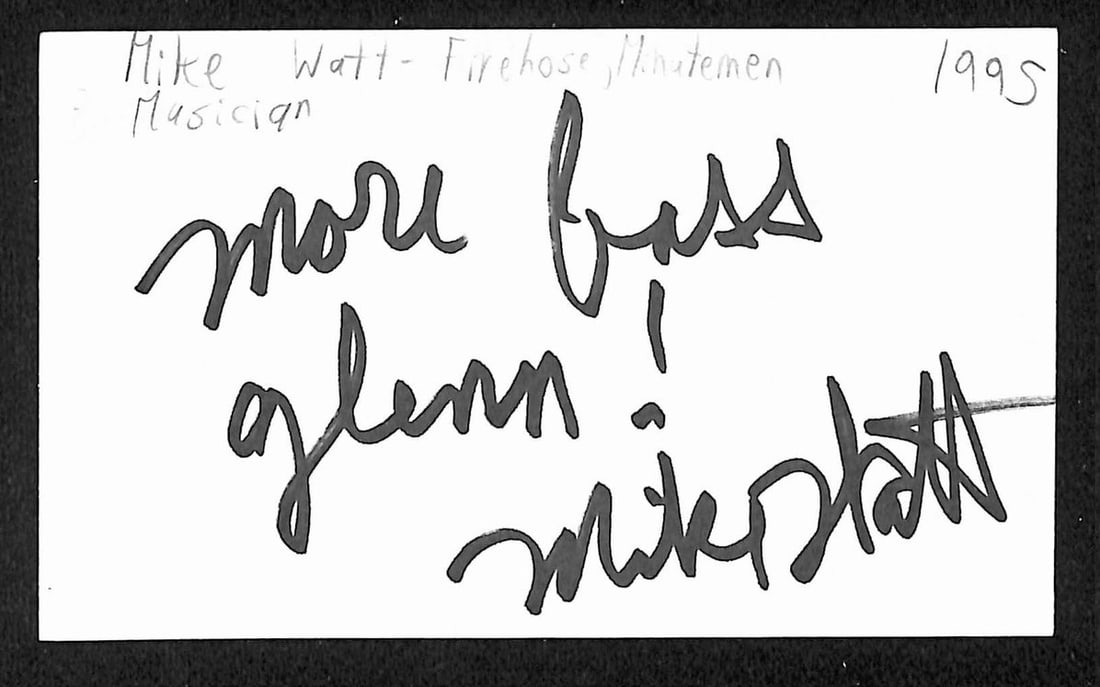 Mike Watt - Firehose, Minutemen 1995
Musician
more bass
glenn!
Mike Watt